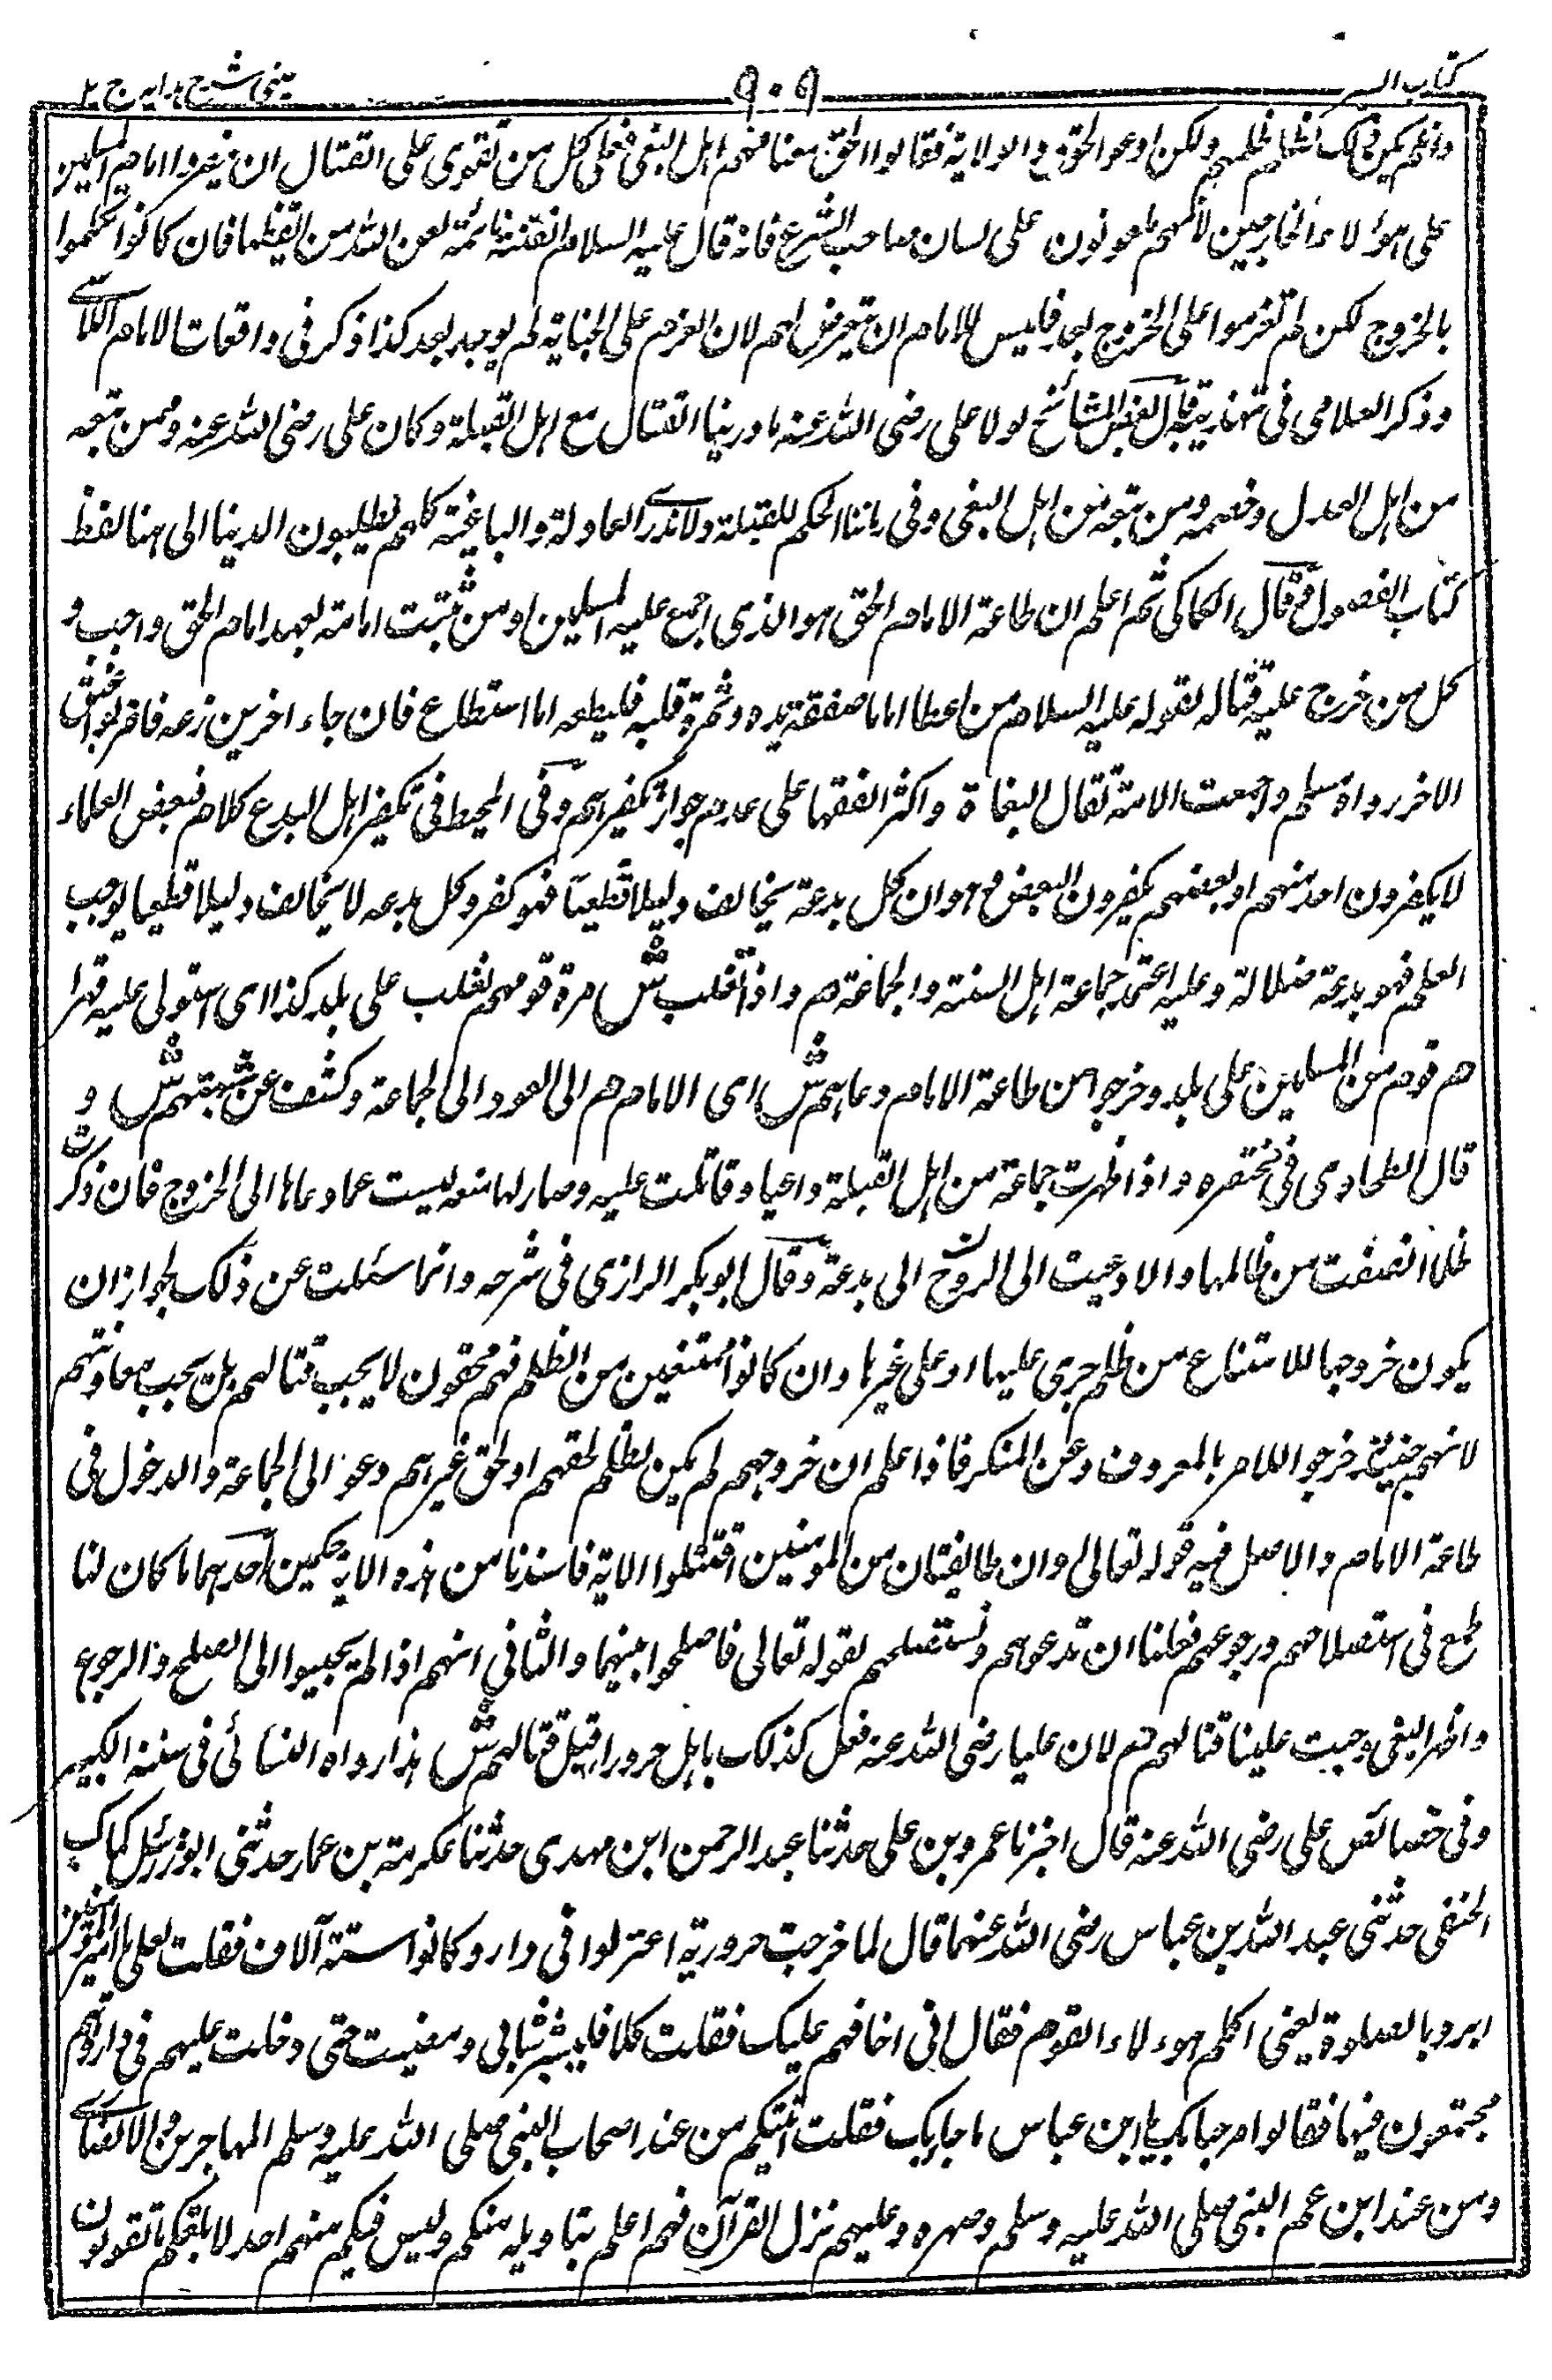 كتاب السير
٩٠٩
عينى شرح هدايه ج ٢
وان لم يكن ذلك لظلم ظلمهم ولكن ادعوا الحق والولاية فقالوا الحق معنا فهم اهل البغى فعلى كل من يقوى على القتال ان ينصروا امام المسلمين
على هؤلاء الخارجين لانهم ملعونون على لسان صاحب الشرع فانه قال عليه السلام الفتنة نائمة لعن الله من ايقظها فان كانوا تكلموا
بالخروج لكن لم يعزموا على الخروج بعد فليس للامام ان يتعرض لهم لان العزم على الجناية لم يوجد بعد كذا ذكر فى واقعات الامام اللامشى
وذكر العلامى فى تهذيبه قال بعض المشائخ لولا على رضى الله عنه ما درينا القتال مع اهل القبلة وكان على رضى الله عنه ومن تبعه
من اهل العدل وخصمه ومن تبعه من اهل البغى وفى زماننا الحكم للغلبة ولا ندرى العادلة والباغية كلهم يطلبون الدنيا الى هنا لفظ
كتاب الفصول وقال الكاكى ثم اعلم ان طاعة الامام الحق هو الذى اجمع عليه المسلمين او من ثبتت امامته بعهد امام الحق واجب و
كل من خرج عليه قتاله لقوله عليه السلام من اعطا اماما صفقة يده وثمرة قلبه فليطعه اما استطاع فان جاء اخر ينازعه فاضربوا عنق
الاخر رواه مسلم واجمعت الامة لقتال البغاة واكثر الفقها على عدم جواز تكفيرهم وفى المحيط فى تكفير اهل البدع كلام فبعض العلماء
لا يكفرون احد منهم وبعضهم يكفرون البعض وهو ان كل بدعة يخالف دليلا قطعيا فهو كفر وكل بدعة لا يخالف دليلا قطعيا يوجب
العلم فهو بدعة ضلالة وعليه اعتمد جماعة اهل السنة والجماعة م واذا تغلب ش مرة قومهم تغلب على بلد كذا اى استولى عليه قهرا
م قوم من المسلمين على بلد وخرجوا من طاعة الامام دعاهم ش اى الامام م الى العود الى الجماعة وكشف عن شبهتهم ش و
قال الطحاوى فى مختصره واذا ظهرت جماعة من اهل القبلة داعيا وقاتلت عليه وصار لها منعة سئلت عما دعاها الى الخروج فان ذكرت
ظلما انصفت من ظالمها والا دعيت الى الرجوع الى بدعة وقال ابو بكر الرازى فى شرحه وانما سئلت عن ذلك لجواز ان
يكون خروجها للامتناع من ظلم جرى عليها او على غيرها وان كانوا ممتنعين من الظلم فهم محقون لا يجب قتالهم بل يجب معاونتهم
لانهم حينئذ خرجوا للامر بالمعروف وعن المنكر فاذا علم ان خروجهم لم يكن لظلم لحقهم او لحق غيرهم دعو الى الجماعة والدخول فى
طاعة الامام والاصل فيه قوله تعالى وان طايفتان من المومنين اقتتلوا الاية فاستفدنا من هذه الاية حكمين احدهما ما كان لنا
طمع فى استصلاحهم ورجوعهم فعلنا ان ندعوهم ونستصلحهم لقوله تعالى فاصلحوا بينهما والثانى انهم اذا لم يجيبوا الى الصلح والرجوع
واظهر البغى وجبت علينا قتالهم م لان عليا رضى الله عنه فعل كذلك باهل حرورا قبل قتالهم ش هذا رواه النسائى فى سننه الكبير
وفى خصائص على رضى الله عنه قال اخبرنا عمرو بن على حدثنا عبد الرحمن ابن مهدى حدثنا عكرمة بن عمار حدثنى ابو زميل سماك
الحنفى حدثنى عبد الله بن عباس رضى الله عنهما قال لما خرجت حرورية اعتزلوا فى دار وكانوا ستة آلاف فقلت لعلى يا امير المؤمنين
ابرد بالصلوة لعلى اكلم هوءلاء القوم فقال انى اخافهم عليك فقلت كلا فلبست ثيابى ومضيت حتى دخلت عليهم فى دار وهم
مجتمعون فيها فقالوا مرحبا بك يا ابن عباس ما جاء بك فقلت اتيتكم من عند اصحاب النبى صلى الله عليه وسلم المهاجرين والانصار
ومن عند ابن عم النبى صلى الله عليه وسلم وصهره وعليهم نزل القرآن فهم اعلم بتاويله منكم وليس فيكم منهم احد لابلغكم ما تقولون